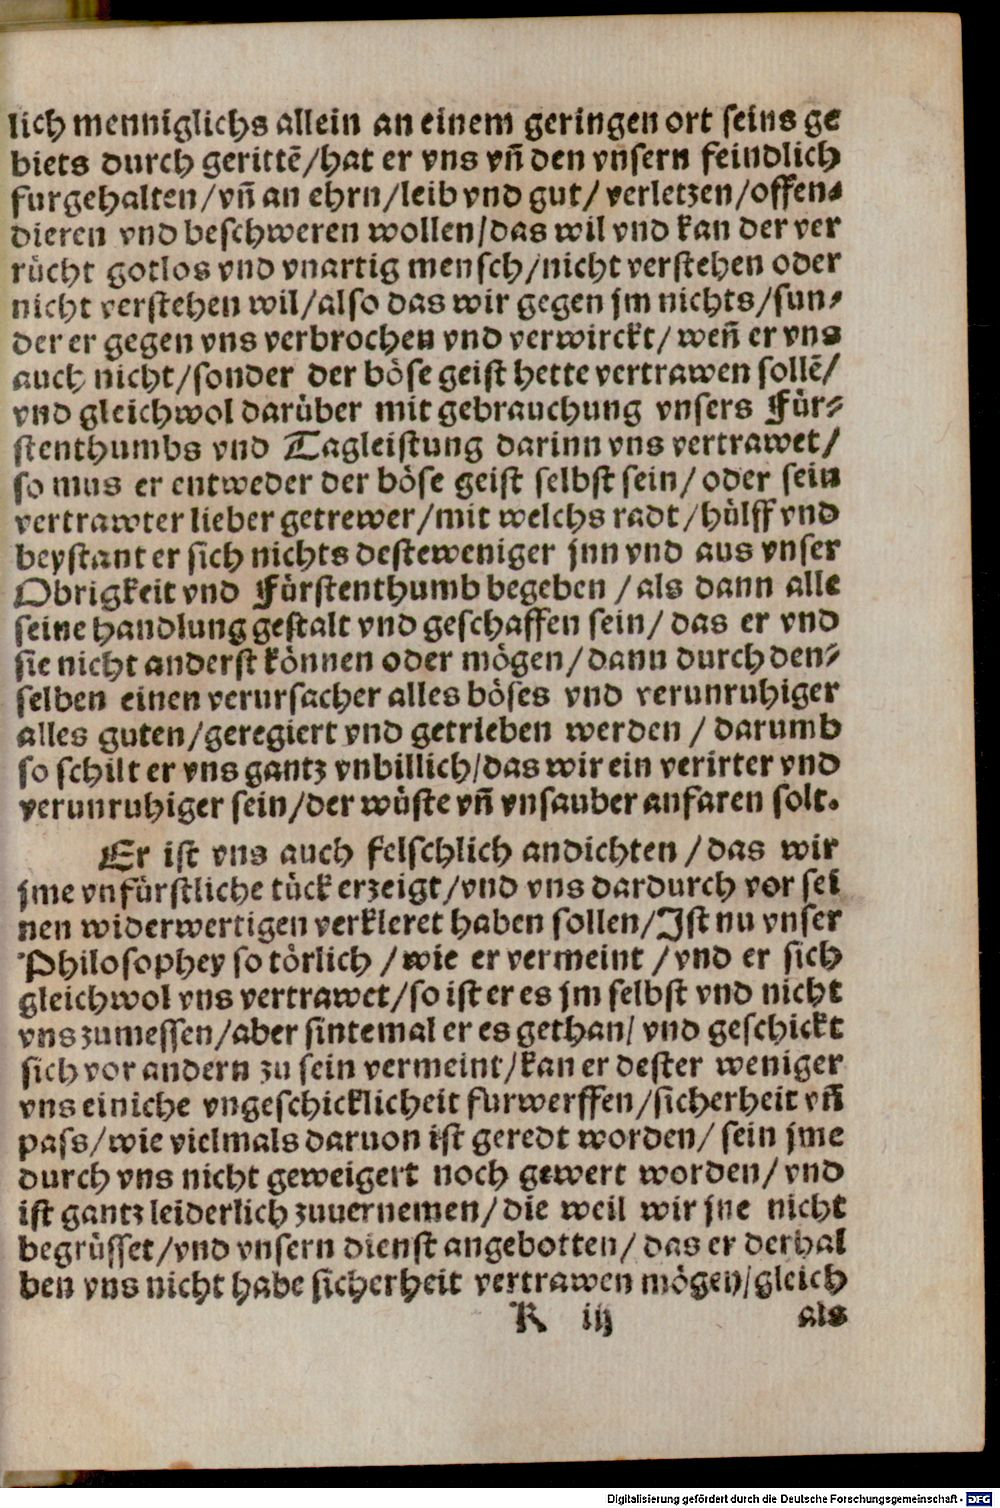 lich menniglichs allein an einem geringen ort seins ge
biets durch gerittē/hat er vns vn̄ den vnsern feindlich
furgehalten/vn̄ an ehrn/leib vnd gut/ verletzen/offen⸗
dieren vnd beschweren wollen/das wil vnd kan der ver
rücht gotlos vnd vnartig mensch/nicht verstehen oder
nicht verstehen wil/also das wir gegen jm nichts/sun⸗
der er gegen vns verbrochen vnd verwirckt/ weñ er vns
auch nicht/sonder der böse geist hette vertrawen sollē/
vnd gleichwol darüber mit gebrauchung vnsers Für⸗
stenthumbs vnd Tagleistung darinn vns vertrawet/
so mus er entweder der böse geist selbst sein/ oder sein
vertrawter lieber getrewer/mit welchs radt/hülff vnd
beystant er sich nichts desteweniger jnn vnd aus vnser
Obrigkeit vnd Fürstenthumb begeben /als dann alle
seine handlung gestalt vnd geschaffen sein/ das er vnd
sie nicht anderst können oder mögen/dann durch den⸗
selben einen verursacher alles böses vnd verunruhiger
alles guten/geregiert vnd getrieben werden / darumb
so schilt er vns gantz vnbillich/das wir ein verirter vnd
verunruhiger sein/der wüste vn̄ vnsauber anfaren solt.
Er ist vns auch felschlich andichten /das wir
jme vnfürstliche tück erzeigt/vnd vns dardurch vor sei
nen widerwertigen verkleret haben sollen/Ist nu vnser
Philosophey so törlich /wie er vermeint /vnd er sich
gleichwol vns vertrawet/so ist er es jm selbst vnd nicht
vns zumessen/aber sintemal er es gethan/ vnd geschickt
sich vor andern zu sein vermeint/kan er dester weniger
vns einiche vngeschicklicheit furwerffen/sicherheit vn̄
pass/wie vielmals daruon ist geredt worden/ sein jme
durch vns nicht geweigert noch gewert worden/ vnd
ist gantz leiderlich zuuernemen/die weil wir jne nicht
begrüsset/vnd vnsern dienst angebotten/ das er derhal
ben vns nicht habe sicherheit vertrawen mögen/gleich
K iij als
Digitalisierung gefördert durch die Deutsche Forschungsgemeinschaft - DFG